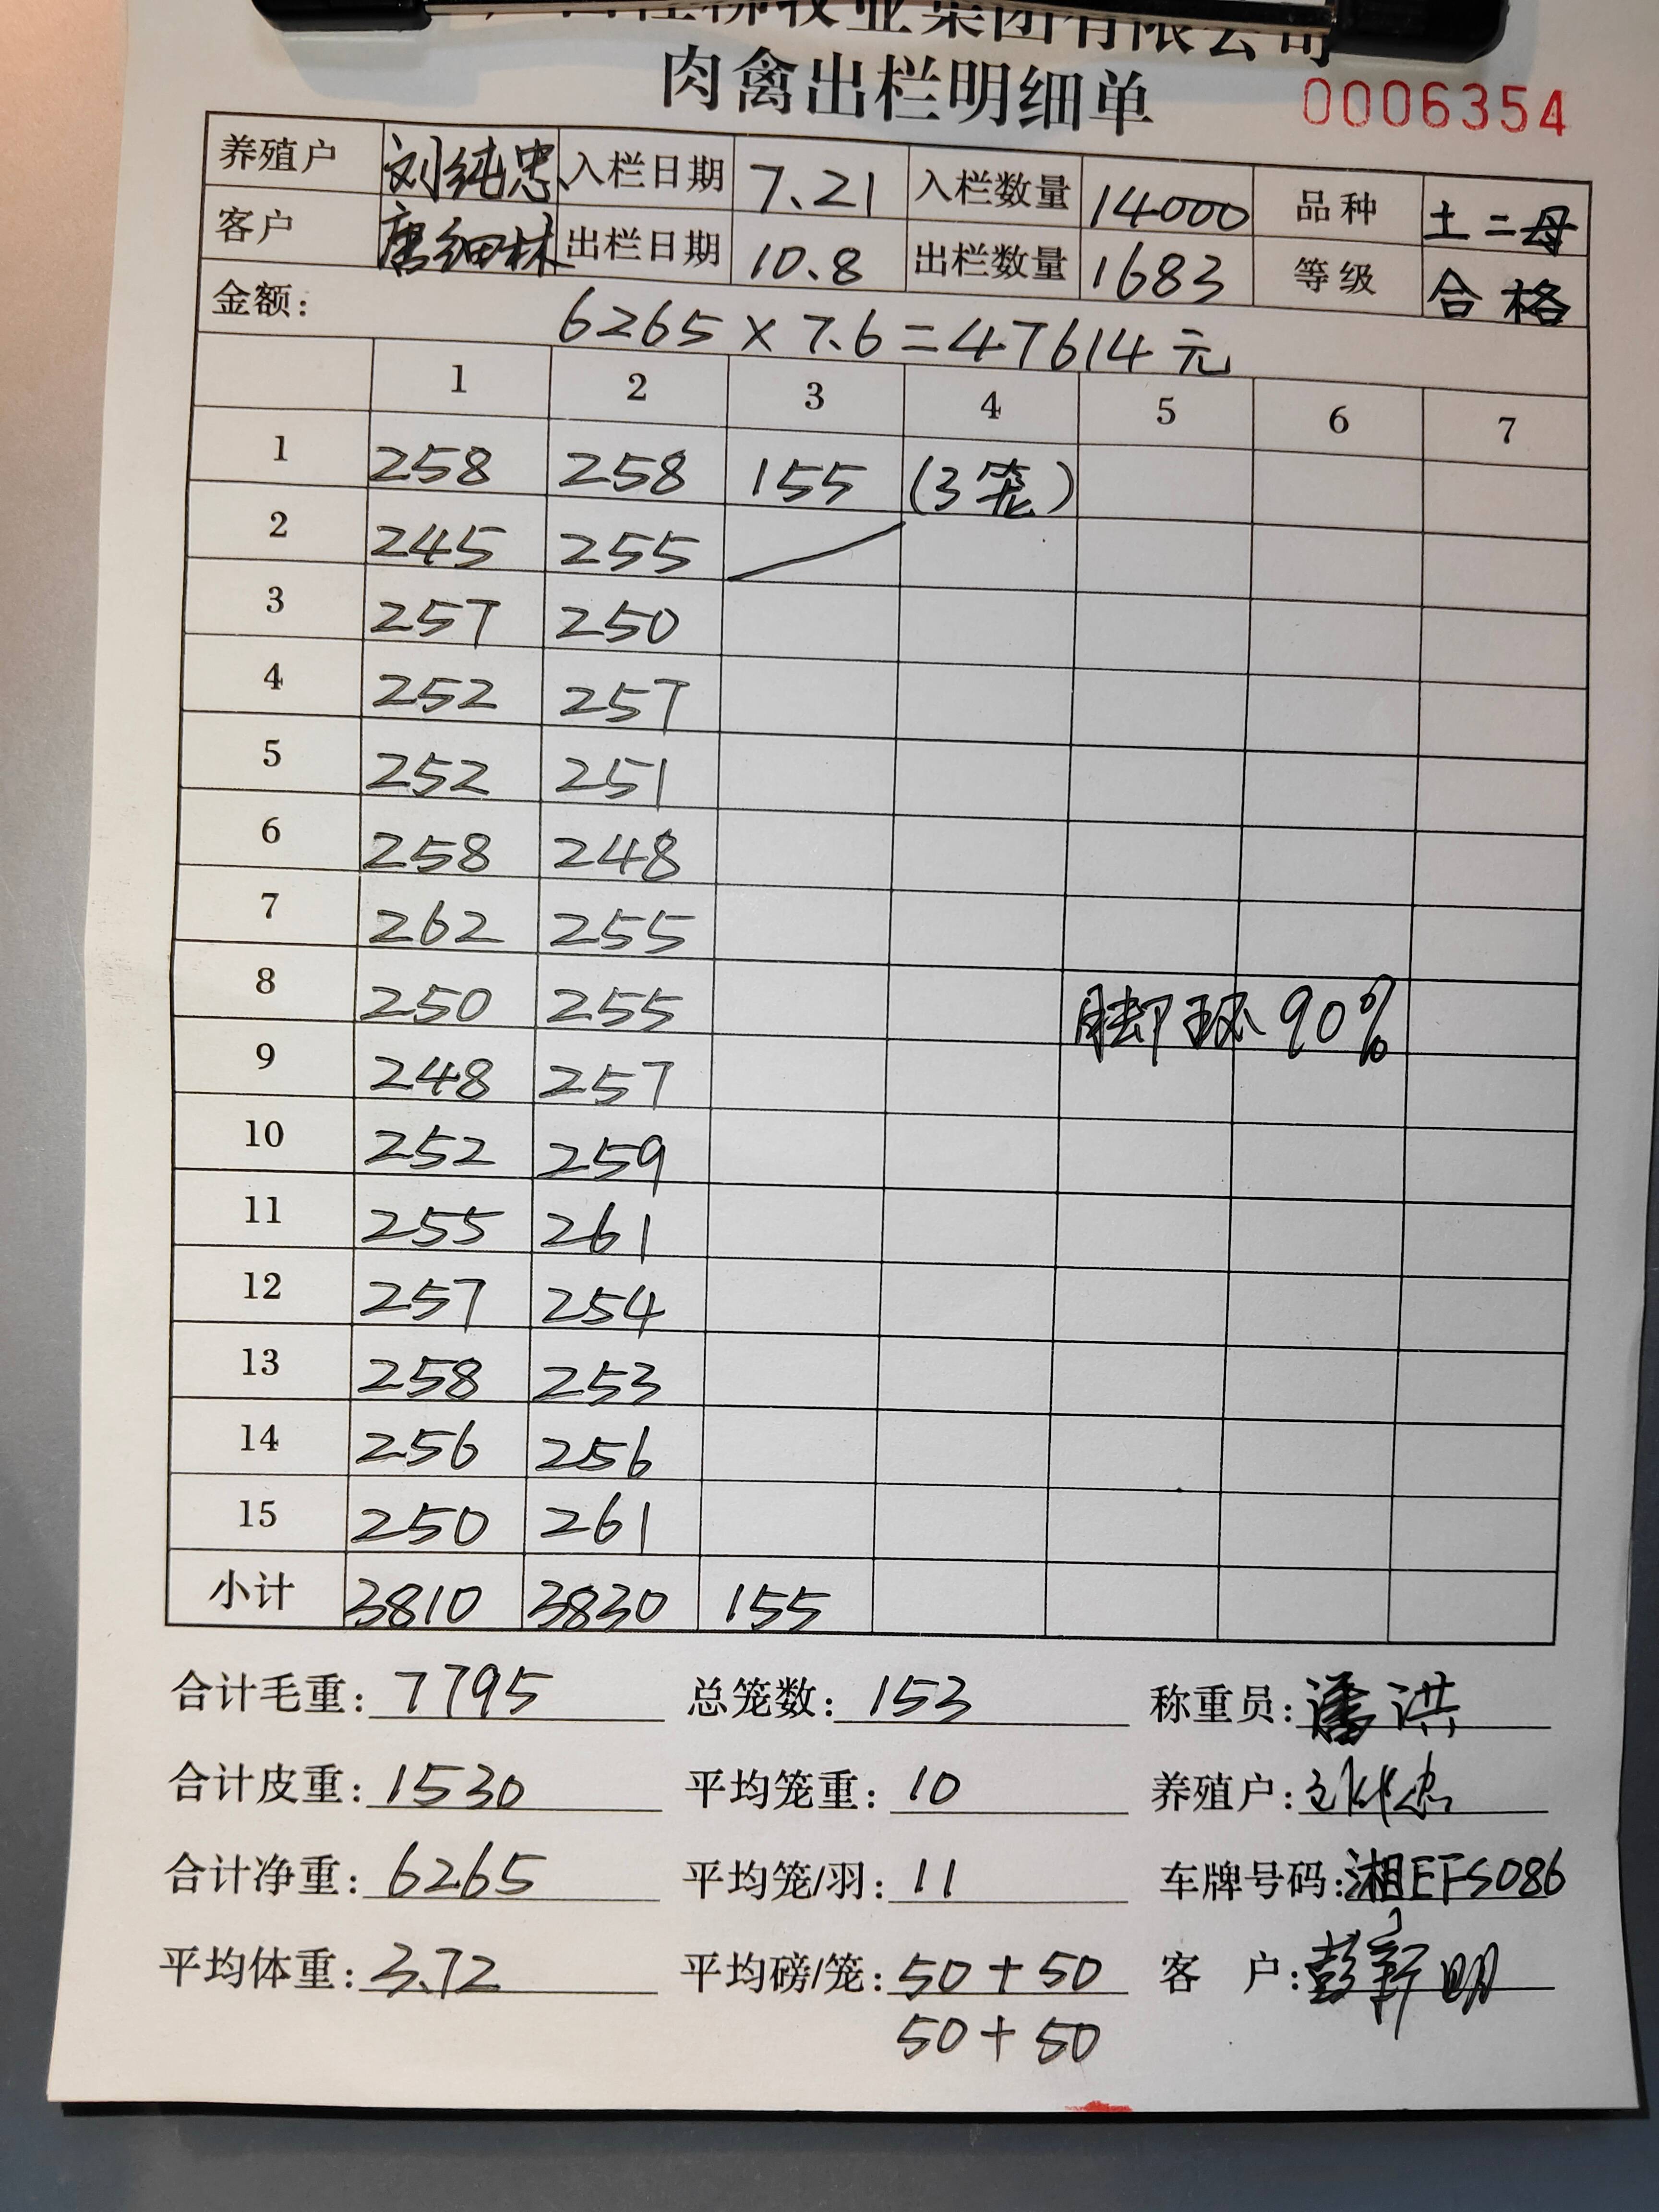 牧业集团有限公司
肉禽出栏明细单
0006354
养殖户 刘纯忠 入栏日期 7.21 入栏数量 14000 品种 土二母
客户 唐细林 出栏日期 10.8 出栏数量 1683 等级 合格
金额: 6265×7.6=47614元
1 2 3 4 5 6 7
1 258 258 155 (3笼)
2 245 255
3 257 250
4 252 257
5 252 251
6 258 248
7 262 255
8 250 255 脚环90%
9 248 257
10 252 259
11 255 261
12 257 254
13 258 253
14 256 256
15 250 261
小计 3810 3830 155
合计毛重: 7795 总笼数: 153 称重员: 潘洪
合计皮重: 1530 平均笼重: 10 养殖户:
合计净重: 6265 平均笼/羽: 11 车牌号码:
平均体重: 3.72 平均磅/笼: 50+50 客 户: 彭新明
50+50